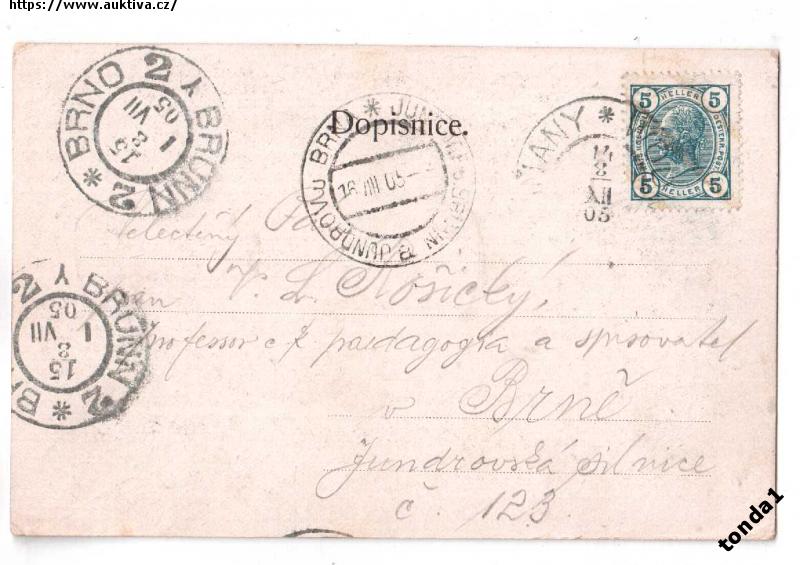 https://www.auktiva.cz/
BRNO 2 Y BRÜNN 2 *
15
8
VII
I
05
Dopisnice.
JUNDROV U BRNA
16 VIII 05
ANY *
14
8
XII
05
5 HELLER 5
5 HELLER 5
Velectěný Pan
P. L. Košický,
professor c. k. paedagogia a spisovatel
v Brně
Jundrovská silnice
č. 123.
BRÜNN 2 Y
15
8
VII
I
05
tonda1